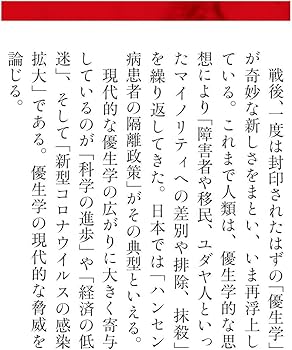 戦後、一度は封印されたはずの「優生学」
が奇妙な新しさをまとい、いま再浮上し
ている。これまで人類は、優生学的な思
想により「障害者や移民、ユダヤ人といっ
たマイノリティへの差別や排除、抹殺」
を繰り返してきた。日本では「ハンセン
病患者の隔離政策」がその典型といえる。
現代的な優生学の広がりに大きく寄与
しているのが「科学の進歩」や「経済の低
迷」、そして「新型コロナウイルスの感染
拡大」である。優生学の現代的な脅威を
論じる。